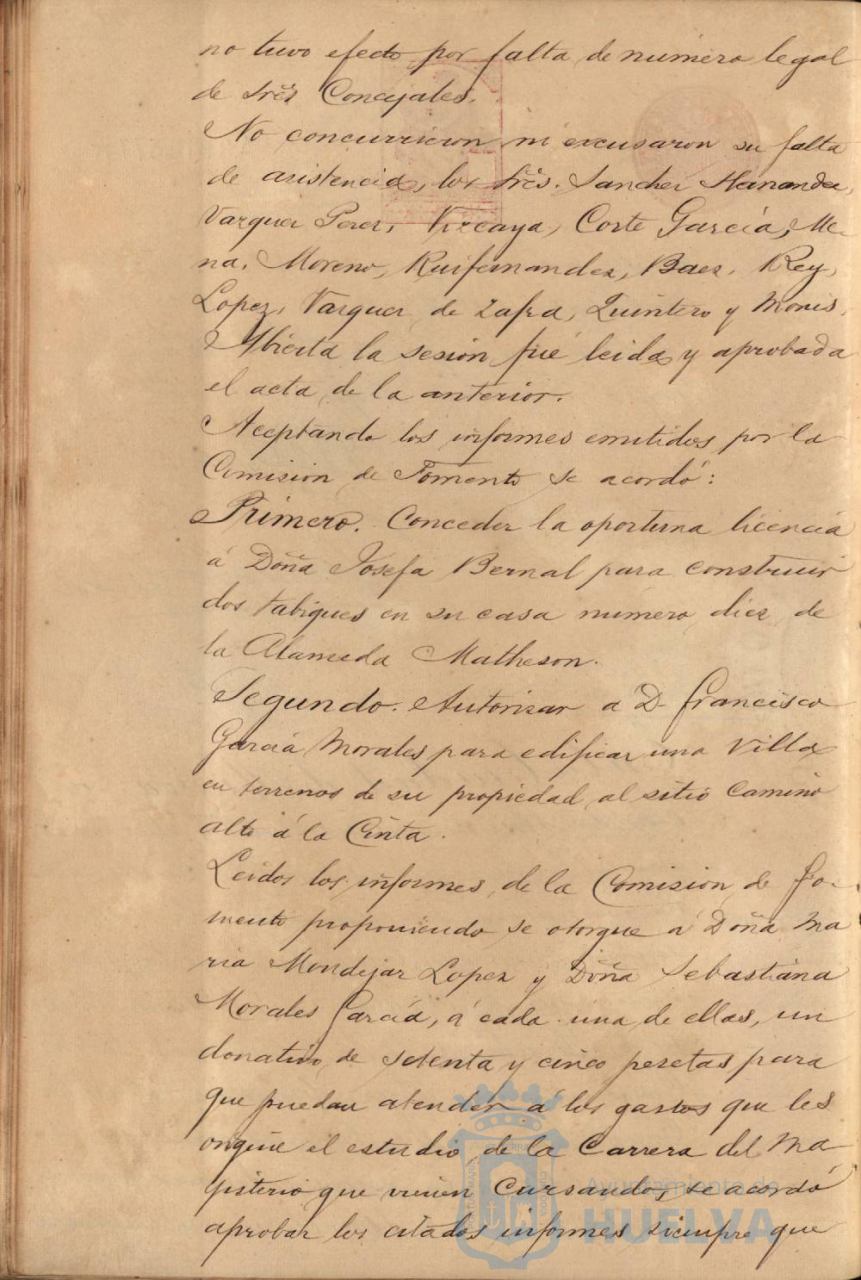 no tuvo efecto por falta de número legal
de Srēs Concejales.
No concurrieron ni excusaron su falta
de asistencia, los Srēs. Sanchez Hernandez,
Vazquez Perez, Vizcaya, Corte García, Me-
na, Moreno, Ruifernandez, Baez, Rey,
Lopez, Vazquez de Zafra, Quintero y Monis.
Abierta la sesión fué leida y aprobada
el acta de la anterior.
Aceptando los informes emitidos por la
Comision de Fomento se acordó:
Primero. Conceder la oportuna licencia
á Doña Josefa Bernal para construir
dos tabiques en su casa número diez de
la Alameda Matheson.
Segundo. Autorizar a D. Francisco
García Morales para edificar una Villa
en terrenos de su propiedad, al sitio Camino
alto á la Cinta.
Leidos los informes de la Comision de Fo-
mento proponiendo se otorgue á Doña Ma
ria Mondejar Lopez y Doña Sebastiana
Morales García, á cada una de ellas, un
donativo de setenta y cinco pesetas para
que puedan atender á los gastos que les
origine el estudio de la Carrera del Ma-
gisterio que vienen Cursando, se acordó
aprobar los citados informes siempre que
Ayuntamiento de
HUELVA